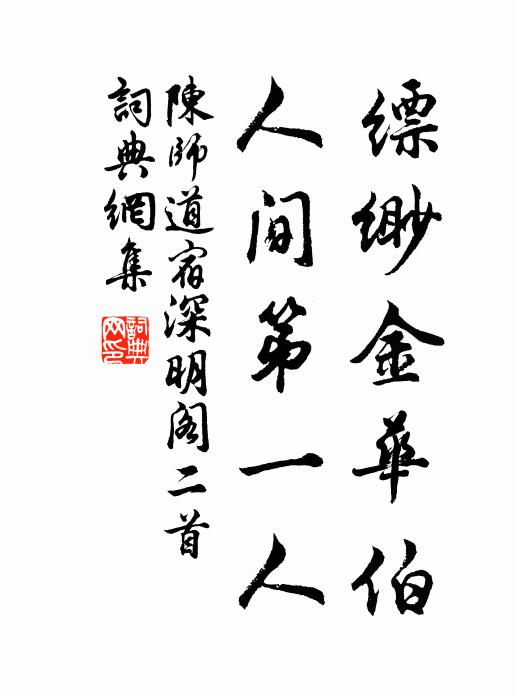 缥缈金華伯
人间第一人
陳師道宿深明阁二首
詞典網集
詞典网印